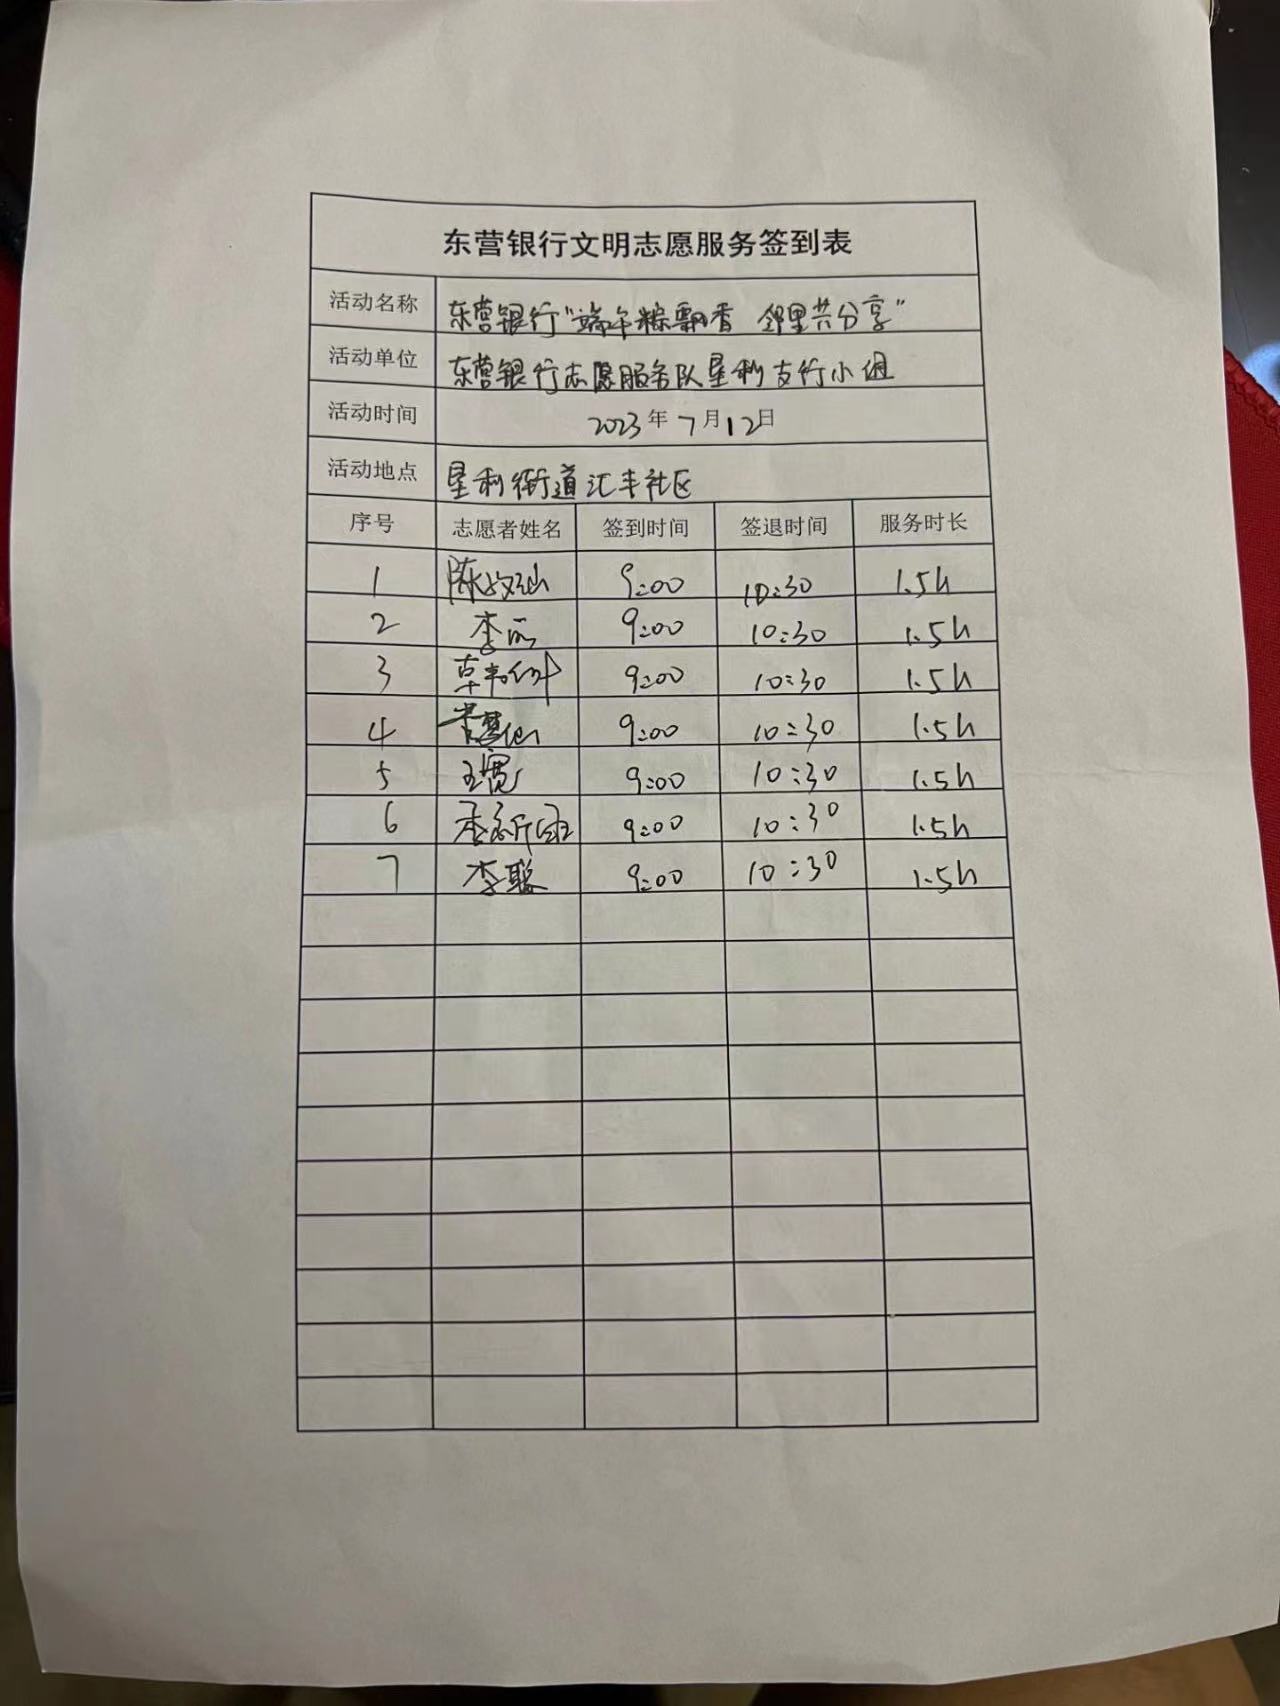 东营银行文明志愿服务签到表
活动名称 东营银行“端午粽飘香 邻里共分享”
活动单位 东营银行志愿服务队垦利支行小组
活动时间 2023年7月12日
活动地点 垦利街道汇丰社区
序号 志愿者姓名 签到时间 签退时间 服务时长
1 9:00 10:30 1.5h
2 李 9:00 10:30 1.5h
3 9:00 10:30 1.5h
4 9:00 10:30 1.5h
5 王宽 9:00 10:30 1.5h
6 9:00 10:30 1.5h
7 李聪 9:00 10:30 1.5h